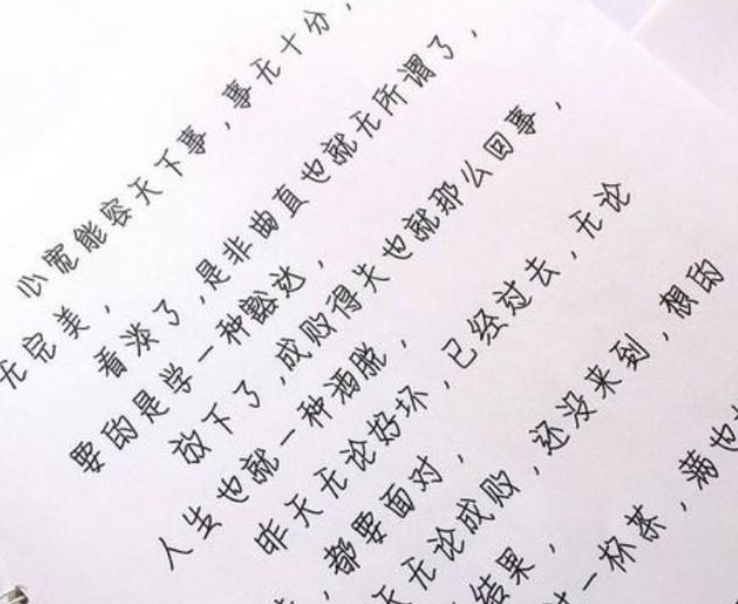 心宽能容天下事，事无十分，
无完美，
看淡了，是非曲直也就无所谓了，
要的是学一种豁达，
放下了，成败得失也就那么回事，
人生也就一种洒脱，
昨天无论好坏，已经过去，无论
，都要面对，
天无论成败，还没来到，想的
结果，
一杯茶，满也